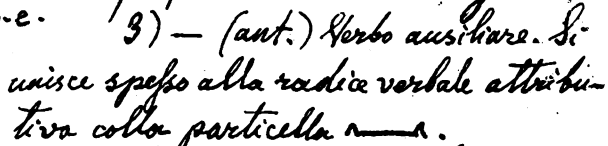 -e.
3) — (ant.) Verbo ausiliare. Si
unisce spesso alla radice verbale attribu-
tiva colla particella .